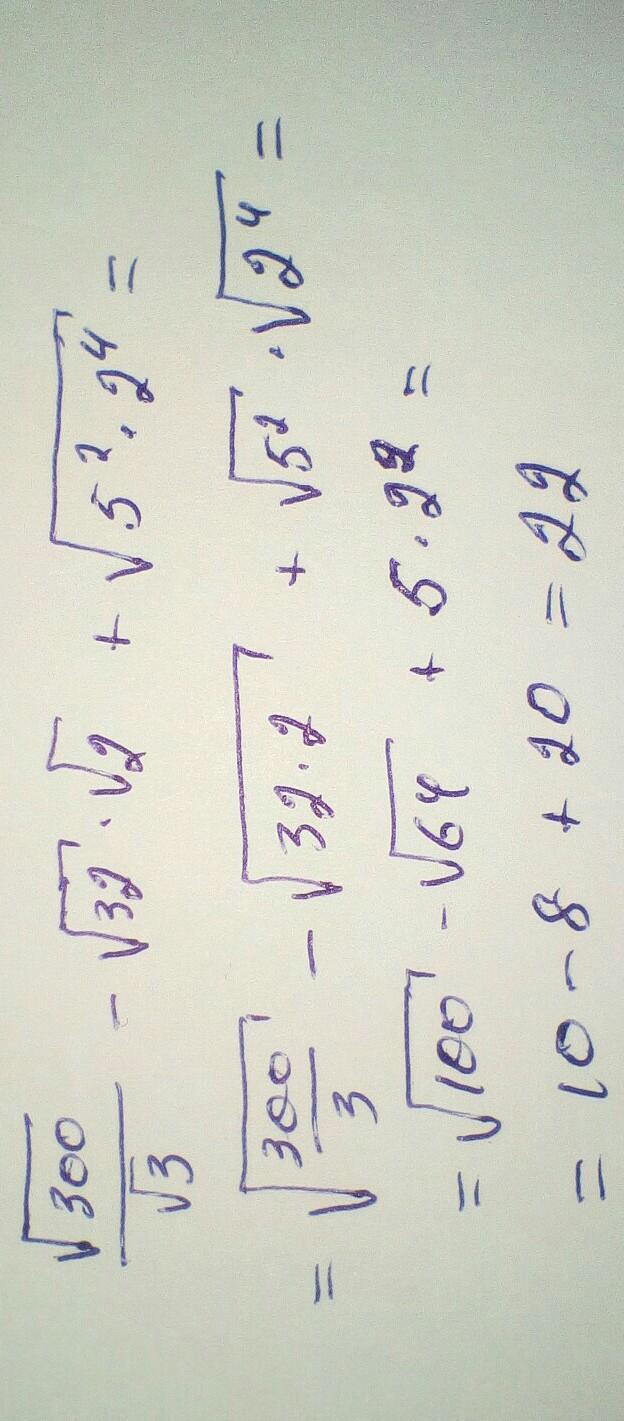 √300/√3 - √32 · √2 + √5² · 2⁴ =
= √300/3 - √32 · 2 + √5² · √2⁴ =
= √100 - √64 + 5 · 2² =
= 10 - 8 + 20 = 22